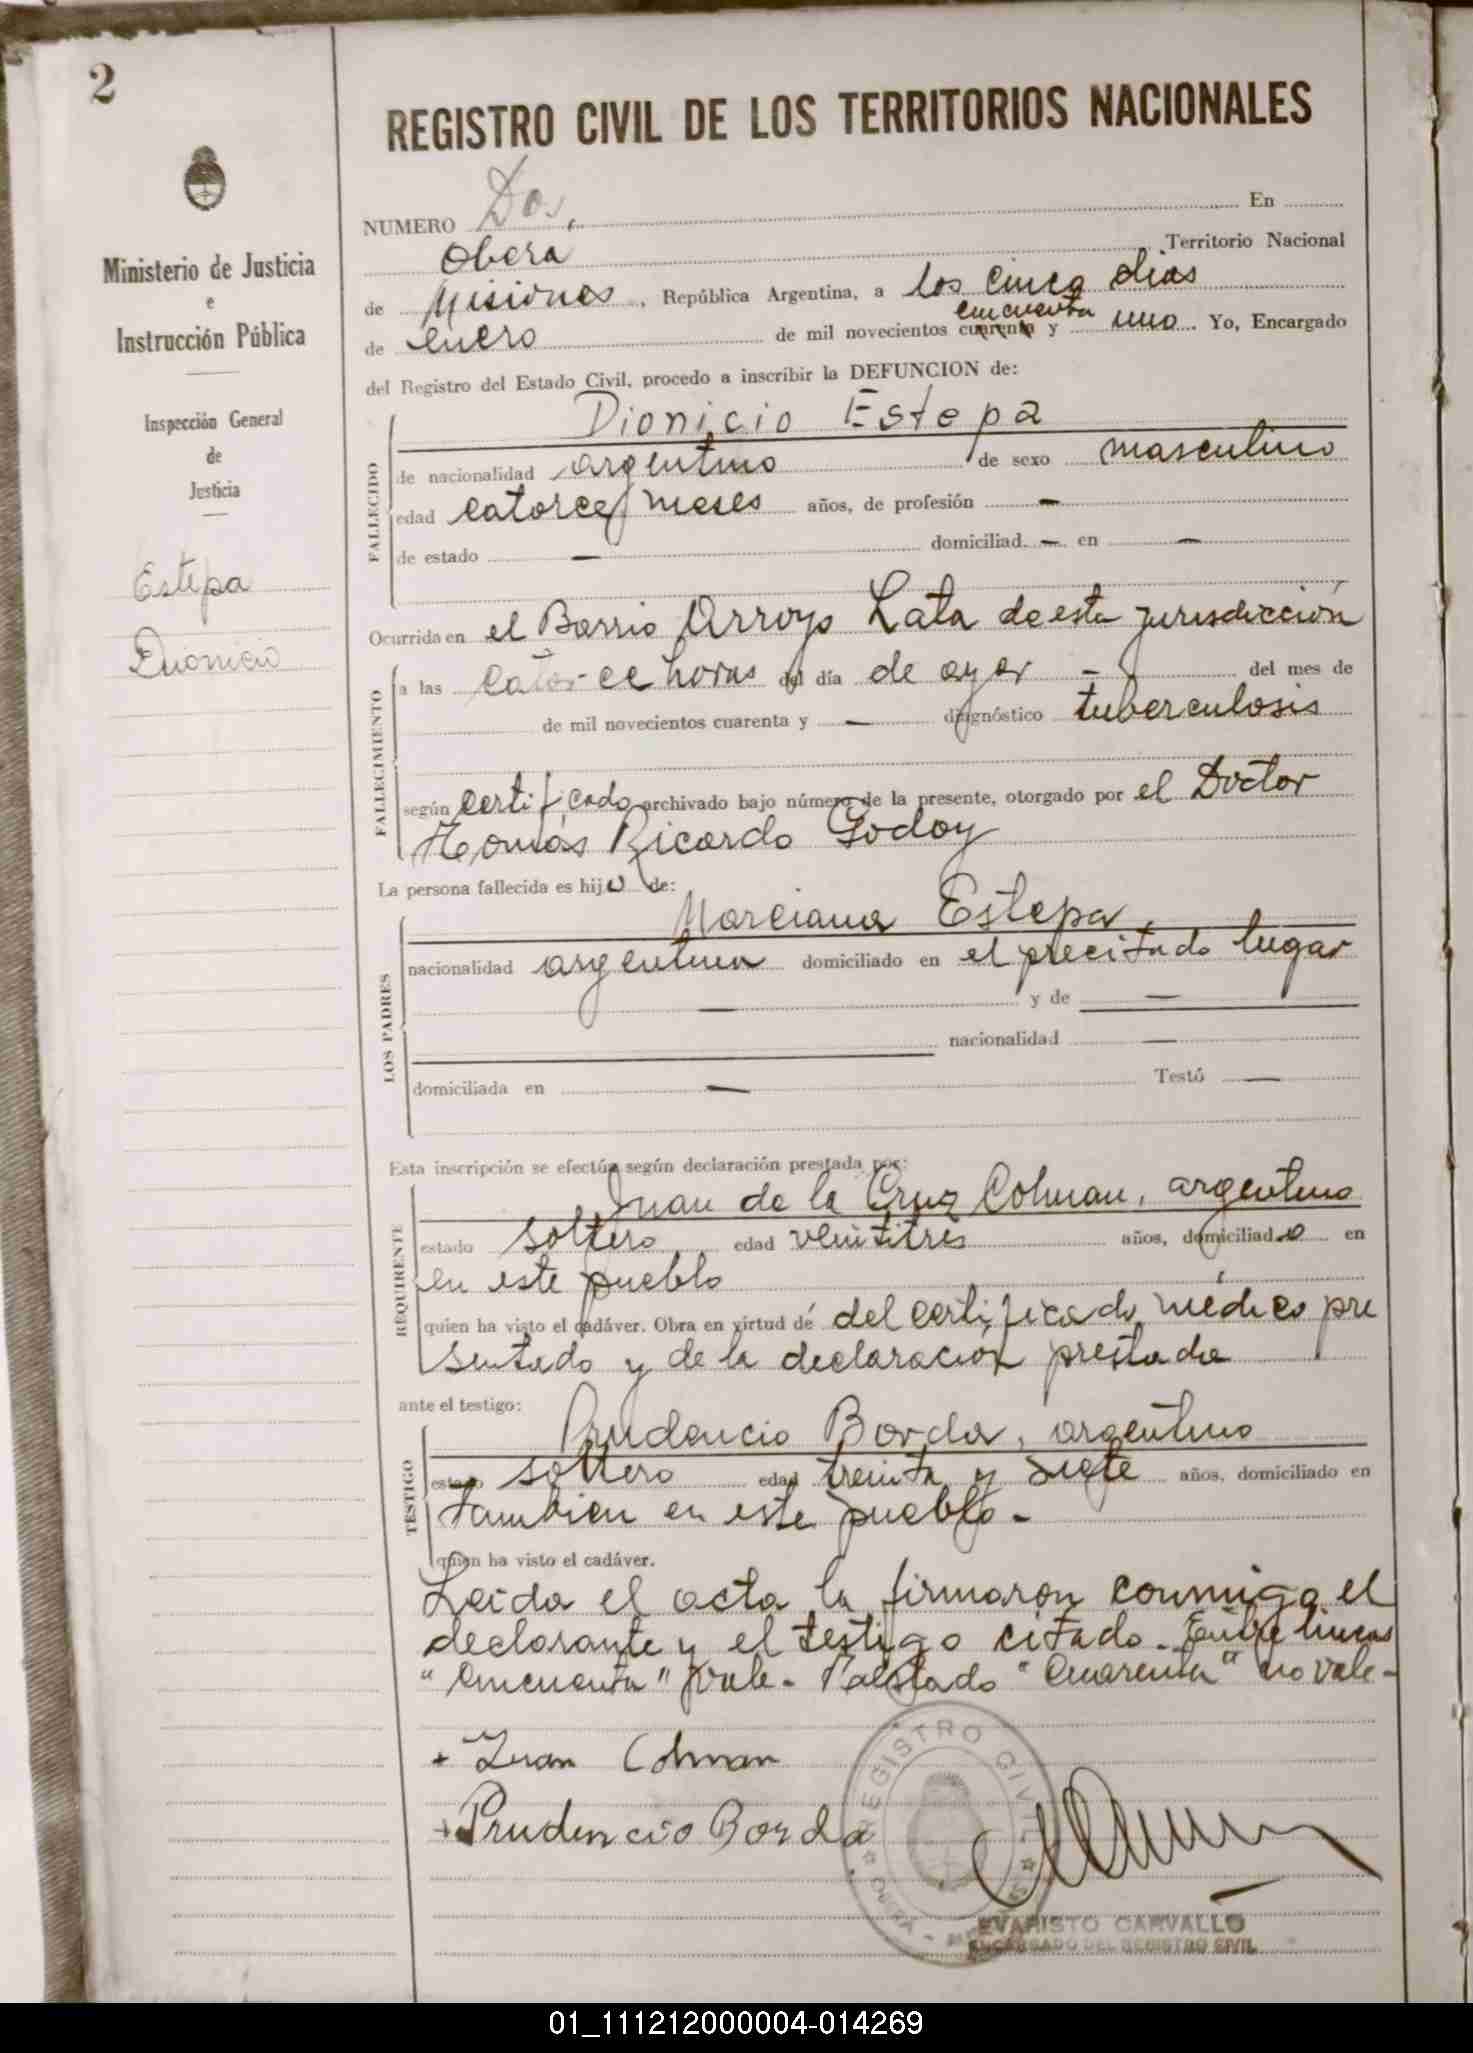 2
REGISTRO CIVIL DE LOS TERRITORIOS NACIONALES
Ministerio de Justicia
e
Instrucción Pública
Inspección General
de
Justicia
Estepa
Dionicio
NUMERO Dos, En
Obera Territorio Nacional
de Misiones, República Argentina, a los cinco dias
cincuenta
de enero de mil novecientos cuarenta y uno Yo, Encargado
del Registro del Estado Civil, procedo a inscribir la DEFUNCION de:
FALLECIDO
Dionicio Estepa
de nacionalidad argentino de sexo masculino
edad catorce meses años, de profesión —
de estado — domiciliad — en —
Ocurrida en el Barrio Arroyo Lata de esta jurisdicción
FALLECIMIENTO
a las catorce horas del día de ayer - del mes de
de mil novecientos cuarenta y — diagnóstico tuberculosis
según certificado archivado bajo número de la presente, otorgado por el Doctor
Tomás Ricardo Godoy
La persona fallecida es hijo de:
LOS PADRES
Marciana Estepa,
nacionalidad argentina domiciliado en el precitado lugar
— y de —
nacionalidad —
domiciliada en — Testó —
Esta inscripción se efectúa según declaración prestada por:
REQUIRENTE
Juan de la Cruz Colman, argentino
estado soltero edad veintitrés años, domiciliado en
en este pueblo
quien ha visto el cadáver. Obra en virtud de del certificado médico pre
sentado y de la declaración prestada
ante el testigo:
TESTIGO
Prudencio Borda, argentino
estado soltero edad treinta y siete años, domiciliado en
tambien en este pueblo.-
quien ha visto el cadáver.
Leida el acta la firmaron conmigo el
declarante y el testigo citado. Entre lineas
"cincuenta" vale - "Cuarenta" no vale-
+ Juan Colman
+ Prudencio Borda
REGISTRO CIVIL
OBERA
EVARISTO CARVALLO
ENCARGADO DEL REGISTRO CIVIL
01_111212000004-014269